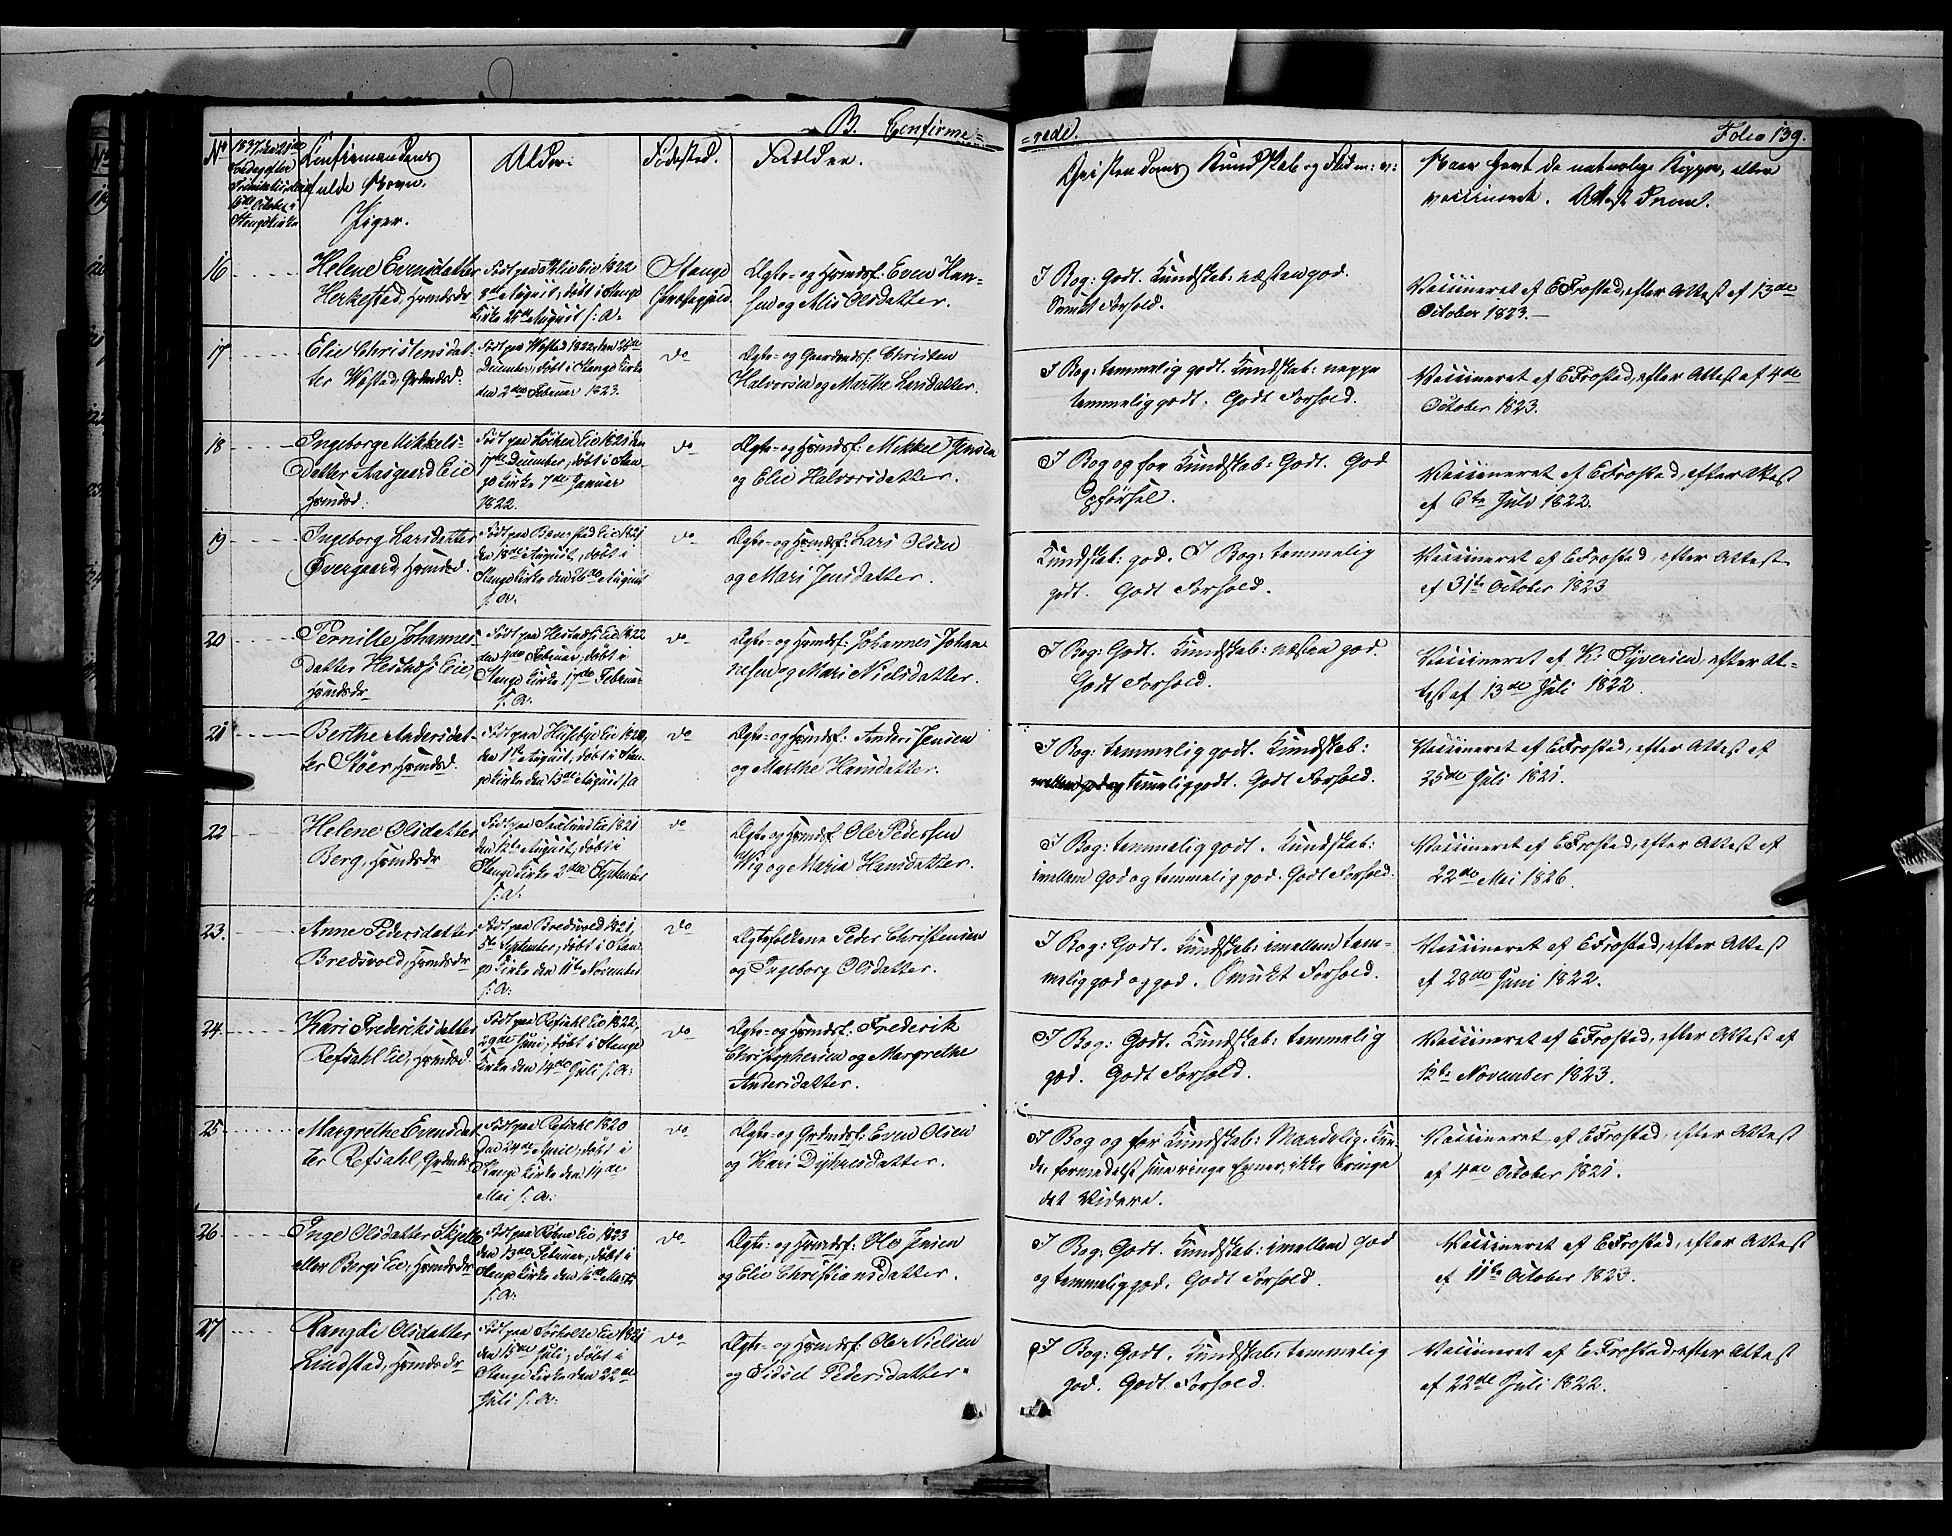 B. Confirme=
=rede.
Folio 139.
No
1837 den 21de
Søndag efter
Trinitatis den
15de October i
Stange Kirke
Confirmandens
fulde Navn.
Piger.
Alder.
Fødested.
Forældre.
Christendoms Kundskab og Flid m: v:
Naar havt de naturlige Kopper, eller
vaccineret. Attest derom.
16
Helene Evensdatter
Herkestad, Huusmds dr
Født paa Eie 1822
8de August, døbt i Stange
Kirke 25de August s: A:
Stange
Præstegjeld.
Ægte- og Huusmdsf: Even Han-
sen og Mis Olsdatter.
I Bog: Godt. Kundskab: næsten god.
Smukt Forhold.
Vaccineret af E Frostad, efter Attest af 13de
October 1823.
17
Elie Christensdat-
ter Wøstad, Grdmdsd.
Født paa Wøstad 1822, den 25de
December, døbt i Stange Kirke
den 2den Februar 1823.
do
Ægte- og Gaardmdsf: Christen
Halvorsen og Marthe Larsdatter.
I Bog: temmelig godt. Kundskab: neppe
temmelig godt. Godt Forhold.
Vaccineret af E Frostad, efter Attest af 4de
October 1823.
18
Ingeborg Mikkels-
datter Aasgaard Eie
Huusmdsd.
Født paa Løken Eie 1821 den
17de December, døbt i Stan-
ge Kirke 7de Januar
1822.
do
Ægte- og Huusmdsf: Mikkel Jensen
og Elie Halvorsdatter.
I Bog og for Kundskab: Godt. God
Opførsel.
Vaccineret af E Frostad, efter Attest
af 6te Juli 1822.
19
Ingeborg Larsdatter
Øvergaard, Huusmdsd.
Født paa Bæverstad Eie 1821
den 18de August, døbt i
Stange Kirke den 26de August
s: A:
do
Ægte- og Huusmdsf: Lars Olsen
og Mari Jensdatter.
Kundskab: god. I Bog: temmelig
godt. Godt Forhold.
Vaccineret af E Frostad, efter Attest
af 31te October 1823
20
Pernille Johannes-
datter Hestnæs Eie,
Huusmds dr
Født paa Hestnæs Eie 1822
den 4de Februar, døbt i
Stange Kirke 17de Februar
s: A:
do
Ægte- og Huusmdsf: Johannes Johan-
nesen og Mari Nielsdatter.
I Bog: Godt. Kundskab: næsten god.
Godt Forhold.
Vaccineret af K: Syversen, efter At-
test af 13de Juli 1822.
21
Berthe Andersdat-
ter Støer, Huusmdsd.
Født paa Huseby Eie 1820,
den 1ste August, døbt i Stan-
ge Kirke den 13de August s: A
do
Ægte- og Huusmdsf: Anders Jensen
og Marthe Hansdatter.
I Bog: temmelig godt. Kundskab:
temmelig godt. Godt Forhold.
Vaccineret af E Frostad, efter Attest af
25de Juli 1821.
22
Helene Olsdatter
Berg, Huusmds dr
Født paa Saxlund Eie 1821
den 12te August, døbt i
Stange Kirke 2den September
s: A:
do
Ægte- og Huusmdsf. Ole Pedersen
Wig og Maria Hansdatter.
I Bog: temmelig godt. Kundskab:
imellem god og temmelig god. Godt Forhold.
Vaccineret af E Frostad, efter Attest af
22de Mai 1826.
23.
Anne Pedersdatter
Bredsvold, Huusmds dr
Født paa Bredsvold 1821,
5te September, døbt i Stan-
ge Kirke den 11te November
s: A:
do
Ægtefolkene Peder Christensen
og Ingeborg Olsdatter.
I Bog: Godt. Kundskab: imellem tem-
melig god og god. Smukt Forhold.
Vaccineret af E Frostad, efter Attest
af 28de Juni 1822.
24.
Kari Frederiksdatter
Refsahl Eie, Huusmdsd.
Født paa Refsahl Eie 1822,
29de Juni, døbt i Stange
Kirke den 14de Juli s: A:
do
Ægte- og Huusmdsf: Frederik
Christophersen og Margrethe
Andersdatter.
I Bog: Godt. Kundskab: temmelig
god. Godt Forhold.
Vaccineret af E Frostad, efter Attest af
12te November 1823.
25
Margrethe Evensdat-
ter Refsahl, Grdmds dr
Født paa Refsahl 1820
den 24de April, døbt i
Stange Kirke den 14de
Mai s: A:
do
Ægte- og Grdmdsf: Even Olsen
og Kari Dyhresdatter.
I Bog og for Kundskab: Maadelig. Kun-
de, formedelst sine ringe Evner, ikke bringe
det videre.
Vaccineret af E Frostad, efter Attest
af 4de October 1821.
26
Inge Olsdatter Skjelle
eller Bergs Eie, Huusmds dr
Født paa Eie 1823
den 13de Februar, døbt i
Stange Kirke den 16de Marts
s: A:
do
Ægte- og Huusmdsf: Ole Jensen
og Elie Christiansdatter.
I Bog: Godt. Kundskab: imellem god
og temmelig god. Godt Forhold.
Vaccineret af E Frostad, efter Attest
af 11te October 1823.
27
Rangdi Olsdatter
Lindstad, Huusmds dr
Født paa Sørholte Eie 1821
den 15de Juli, døbt i
Stange Kirke den 22de
Juli s: A:
do
Ægte- og Huusmdsf: Ole Nielsen
og Sidsel Pedersdatter.
I Bog: Godt. Kundskab: temmelig
god. Godt Forhold.
Vaccineret af E Frostad, efter Attest
af 22de Juli 1822.